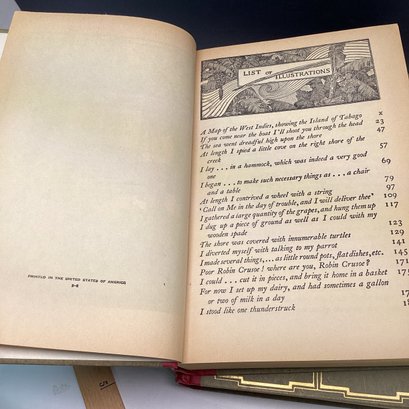 LIST OF ILLUSTRATIONS
A Map of the West Indies, showing the Island of Tabago x
If you come near the boat I'll shoot you through the head 23
The sea went dreadful high upon the shore 47
At length I spied a little cove on the right shore of the
creek 57
I lay . . . in a hammock, which was indeed a very good
one 69
I began . . . to make such necessary things as . . . a chair
and a table 79
At length I contrived a wheel with a string 97
'Call on Me in the day of trouble, and I will deliver thee' 109
I gathered a large quantity of the grapes, and hung them up 117
I dug up a piece of ground as well as I could with my
wooden spade 123
The shore was covered with innumerable turtles 129
I diverted myself with talking to my parrot 141
I made several things, . . . as little round pots, flat dishes, etc. 145
Poor Robin Crusoe! where are you, Robin Crusoe? 171
I could . . . cut it in pieces, and bring it home in a basket 175
For now I set up my dairy, and had sometimes a gallon
or two of milk in a day
I stood like one thunderstruck
PRINTED IN THE UNITED STATES OF AMERICA